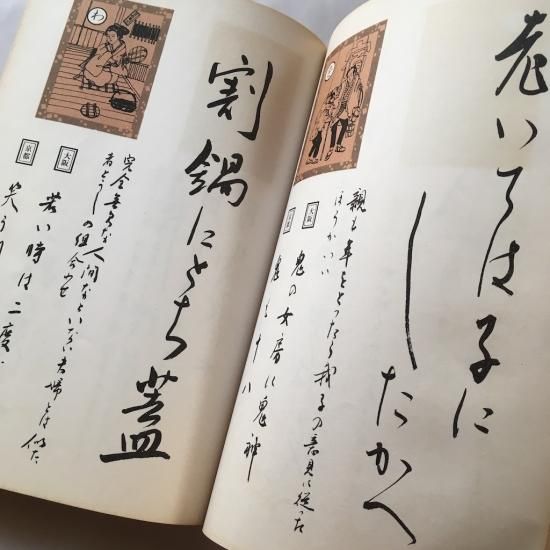 老いては子に
したかへ
親も年をとったら我子の意見に従った
ほうがいい
大阪
鬼の女房に鬼神
京都
鬼も十八
わ
割鍋にとち蓋
完全無欠な人間などいない夫婦とは似た
者どうしの組合わせ
大阪
若い時は二度
京都
笑う門